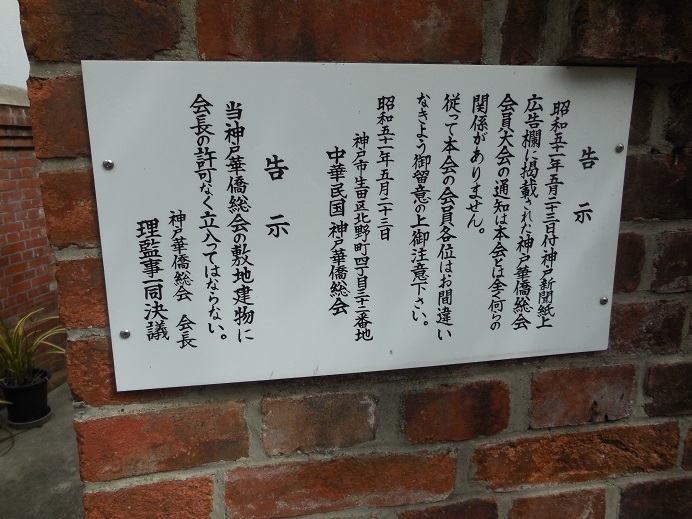 告示
昭和五十一年五月二十三日付神戸新聞紙上
広告欄に掲載された神戸華僑総会
会員大会の通知は本会とは全く何らの
関係がありません。
従って本会の会員各位はお間違い
なきよう御留意の上御注意下さい。
昭和五十一年五月二十三日
神戸市生田区北野町四丁目三十二番地
中華民国 神戸華僑総会
告示
当神戸華僑総会の敷地建物に
会長の許可なく立入ってはならない。
神戸華僑総会 会長
理監事一同決議